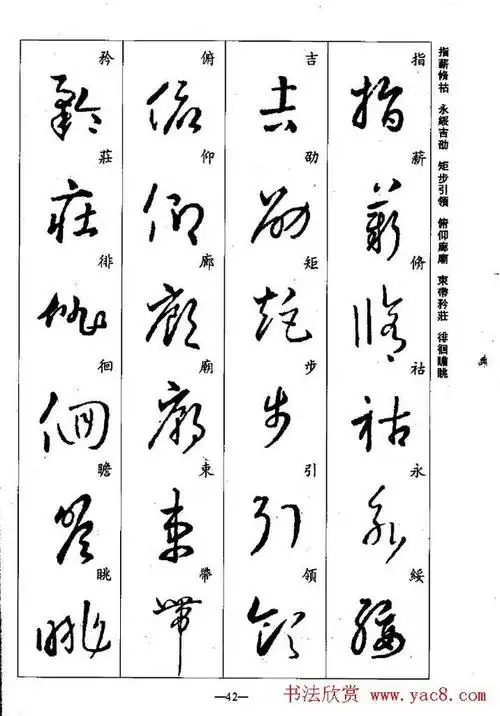 指薪脩祜 永綏吉劭 矩步引領 俯仰廊廟 束帶矜莊 徘徊瞻眺
指薪脩祜永綏
吉劭矩步引領
俯仰廊廟束帶
矜莊徘徊瞻眺
—42—
书法欣赏 www.yac8.com